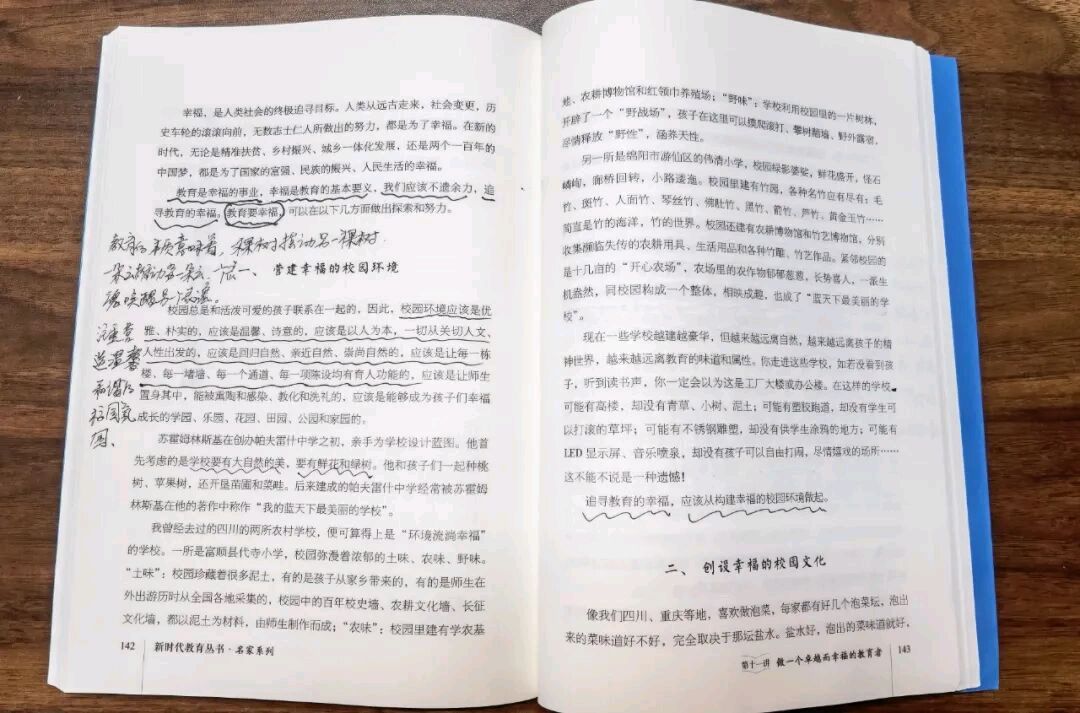 幸福，是人类社会的终极追寻目标。人类从远古走来，社会变更，历
史车轮的滚滚向前，无数志士仁人所做出的努力，都是为了幸福。在新的
时代，无论是精准扶贫、乡村振兴、城乡一体化发展，还是两个一百年的
中国梦，都是为了国家的富强、民族的振兴、人民生活的幸福。
教育是幸福的事业，幸福是教育的基本要义，我们应该不遗余力，追
寻教育的幸福。教育要幸福，可以在以下几方面做出探索和努力。
教育的本质意味着，一棵树摇动另一棵树
一朵云推动另一朵云，
一、营建幸福的校园环境
魂唤醒另一
校园总是和活泼可爱的孩子联系在一起的，因此，校园环境应该是优
雅、朴实的，应该是温馨、诗意的，应该是以人为本，一切从关切人文、
人性出发的，应该是回归自然、亲近自然、崇尚自然的，应该是让每一栋
楼、每一堵墙、每一个通道、每一项陈设均有育人功能的，应该是让师生
置身其中，能被熏陶和感染、教化和洗礼的，应该是能够成为孩子们幸福
成长的学园、乐园、花园、田园、公园和家园的。
注重营
造温馨
和谐的
校园氛
围、
苏霍姆林斯基在创办帕夫雷什中学之初，亲手为学校设计蓝图。他首
先考虑的是学校要有大自然的美，要有鲜花和绿树。他和孩子们一起种桃
树、苹果树，还开垦苗圃和菜畦。后来建成的帕夫雷什中学经常被苏霍姆
林斯基在他的著作中称作“我的蓝天下最美丽的学校”。
我曾经去过的四川的两所农村学校，便可算得上是“环境流淌幸福”
的学校。一所是富顺县代寺小学，校园弥漫着浓郁的土味、农味、野味。
“土味”：校园珍藏着很多泥土，有的是孩子从家乡带来的，有的是师生在
外出游历时从全国各地采集的，校园中的百年校史墙、农耕文化墙、长征
文化墙，都以泥土为材料，由师生制作而成；“农味”：校园里建有学农基
142 新时代教育丛书·名家系列
地、农耕博物馆和红领巾养殖场；“野味”：学校利用校园里的一片树林，
开辟了一个“野战场”，孩子在这里可以摸爬滚打、攀树翻墙、野外露宿，
尽情释放“野性”，涵养天性。
另一所是绵阳市游仙区的伟清小学，校园绿影婆娑，鲜花盛开，怪石
嶙峋，廊桥回转，小路逶迤。校园里建有竹园，各种名竹应有尽有：毛
竹、斑竹、人面竹、琴丝竹、佛肚竹、黑竹、箭竹、芦竹、黄金玉竹……
简直是竹的海洋，竹的世界。校园还建有农耕博物馆和竹艺博物馆，分别
收集濒临失传的农耕用具、生活用品和各种竹雕、竹艺作品。紧邻校园的
是十几亩的“开心农场”，农场里的农作物郁郁葱葱，长势喜人，一派生
机盎然，同校园构成一个整体，相映成趣，也成了“蓝天下最美丽的学
校”。
现在一些学校越建越豪华，但越来越远离自然，越来越远离孩子的精
神世界，越来越远离教育的味道和属性。你走进这些学校，如若没看到孩
子，听到读书声，你一定会以为这是工厂大楼或办公楼。在这样的学校，
可能有高楼，却没有青草、小树、泥土；可能有塑胶跑道，却没有学生可
以打滚的草坪；可能有不锈钢雕塑，却没有供学生涂鸦的地方；可能有
LED 显示屏、音乐喷泉，却没有孩子可以自由打闹、尽情嬉戏的场所……
这不能不说是一种遗憾！
追寻教育的幸福，应该从构建幸福的校园环境做起。
二、创设幸福的校园文化
像我们四川、重庆等地，喜欢做泡菜，每家都有好几个泡菜坛，泡出
来的菜味道好不好，完全取决于那坛盐水。盐水好，泡出的菜味道就好，
第十一讲 做一个卓越而幸福的教育者 143